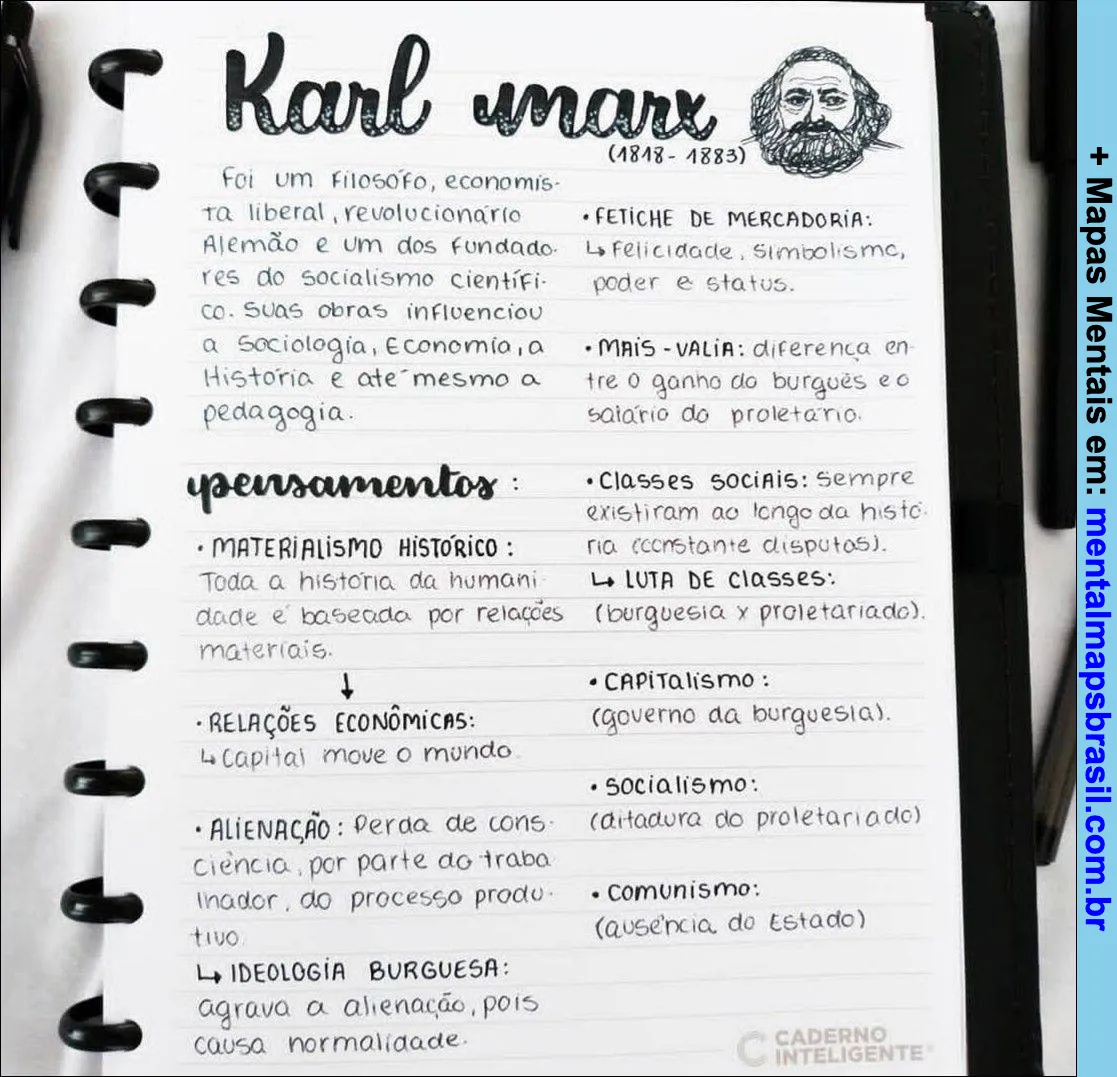 Karl Marx
(1818 - 1883)
Foi um filosófo, economis-
ta liberal, revolucionário
Alemão e um dos fundado-
res do socialismo científi-
co. Suas obras influenciou
a Sociologia, Economia, a
História e até mesmo a
pedagogia.
pensamentos:
• MATERIALISMO HISTÓRICO:
Toda a história da humani-
dade é baseada por relações
materiais.
↓
• RELAÇÕES ECONÔMICAS:
↳ Capital move o mundo.
• ALIENAÇÃO: Perda de cons-
ciência, por parte do traba
lhador, do processo produ-
tivo.
↳ IDEOLOGIA BURGUESA:
agrava a alienação, pois
causa normalidade.
• FETICHE DE MERCADORIA:
↳ Felicidade, Simbolismo,
poder e status.
• MAIS-VALIA: diferença en-
tre o ganho do burguês e o
salário do proletário.
• Classes sociais: Sempre
existiram ao longo da histó-
ria (constante disputas).
↳ LUTA DE Classes:
(burguesia x proletariado).
• CAPITalismo:
(governo da burguesia).
• Socialismo:
(ditadura do proletariado)
• Comunismo:
(ausência do Estado)
CADERNO
INTELIGENTE
+ Mapas Mentais em: mentalmapsbrasil.com.br